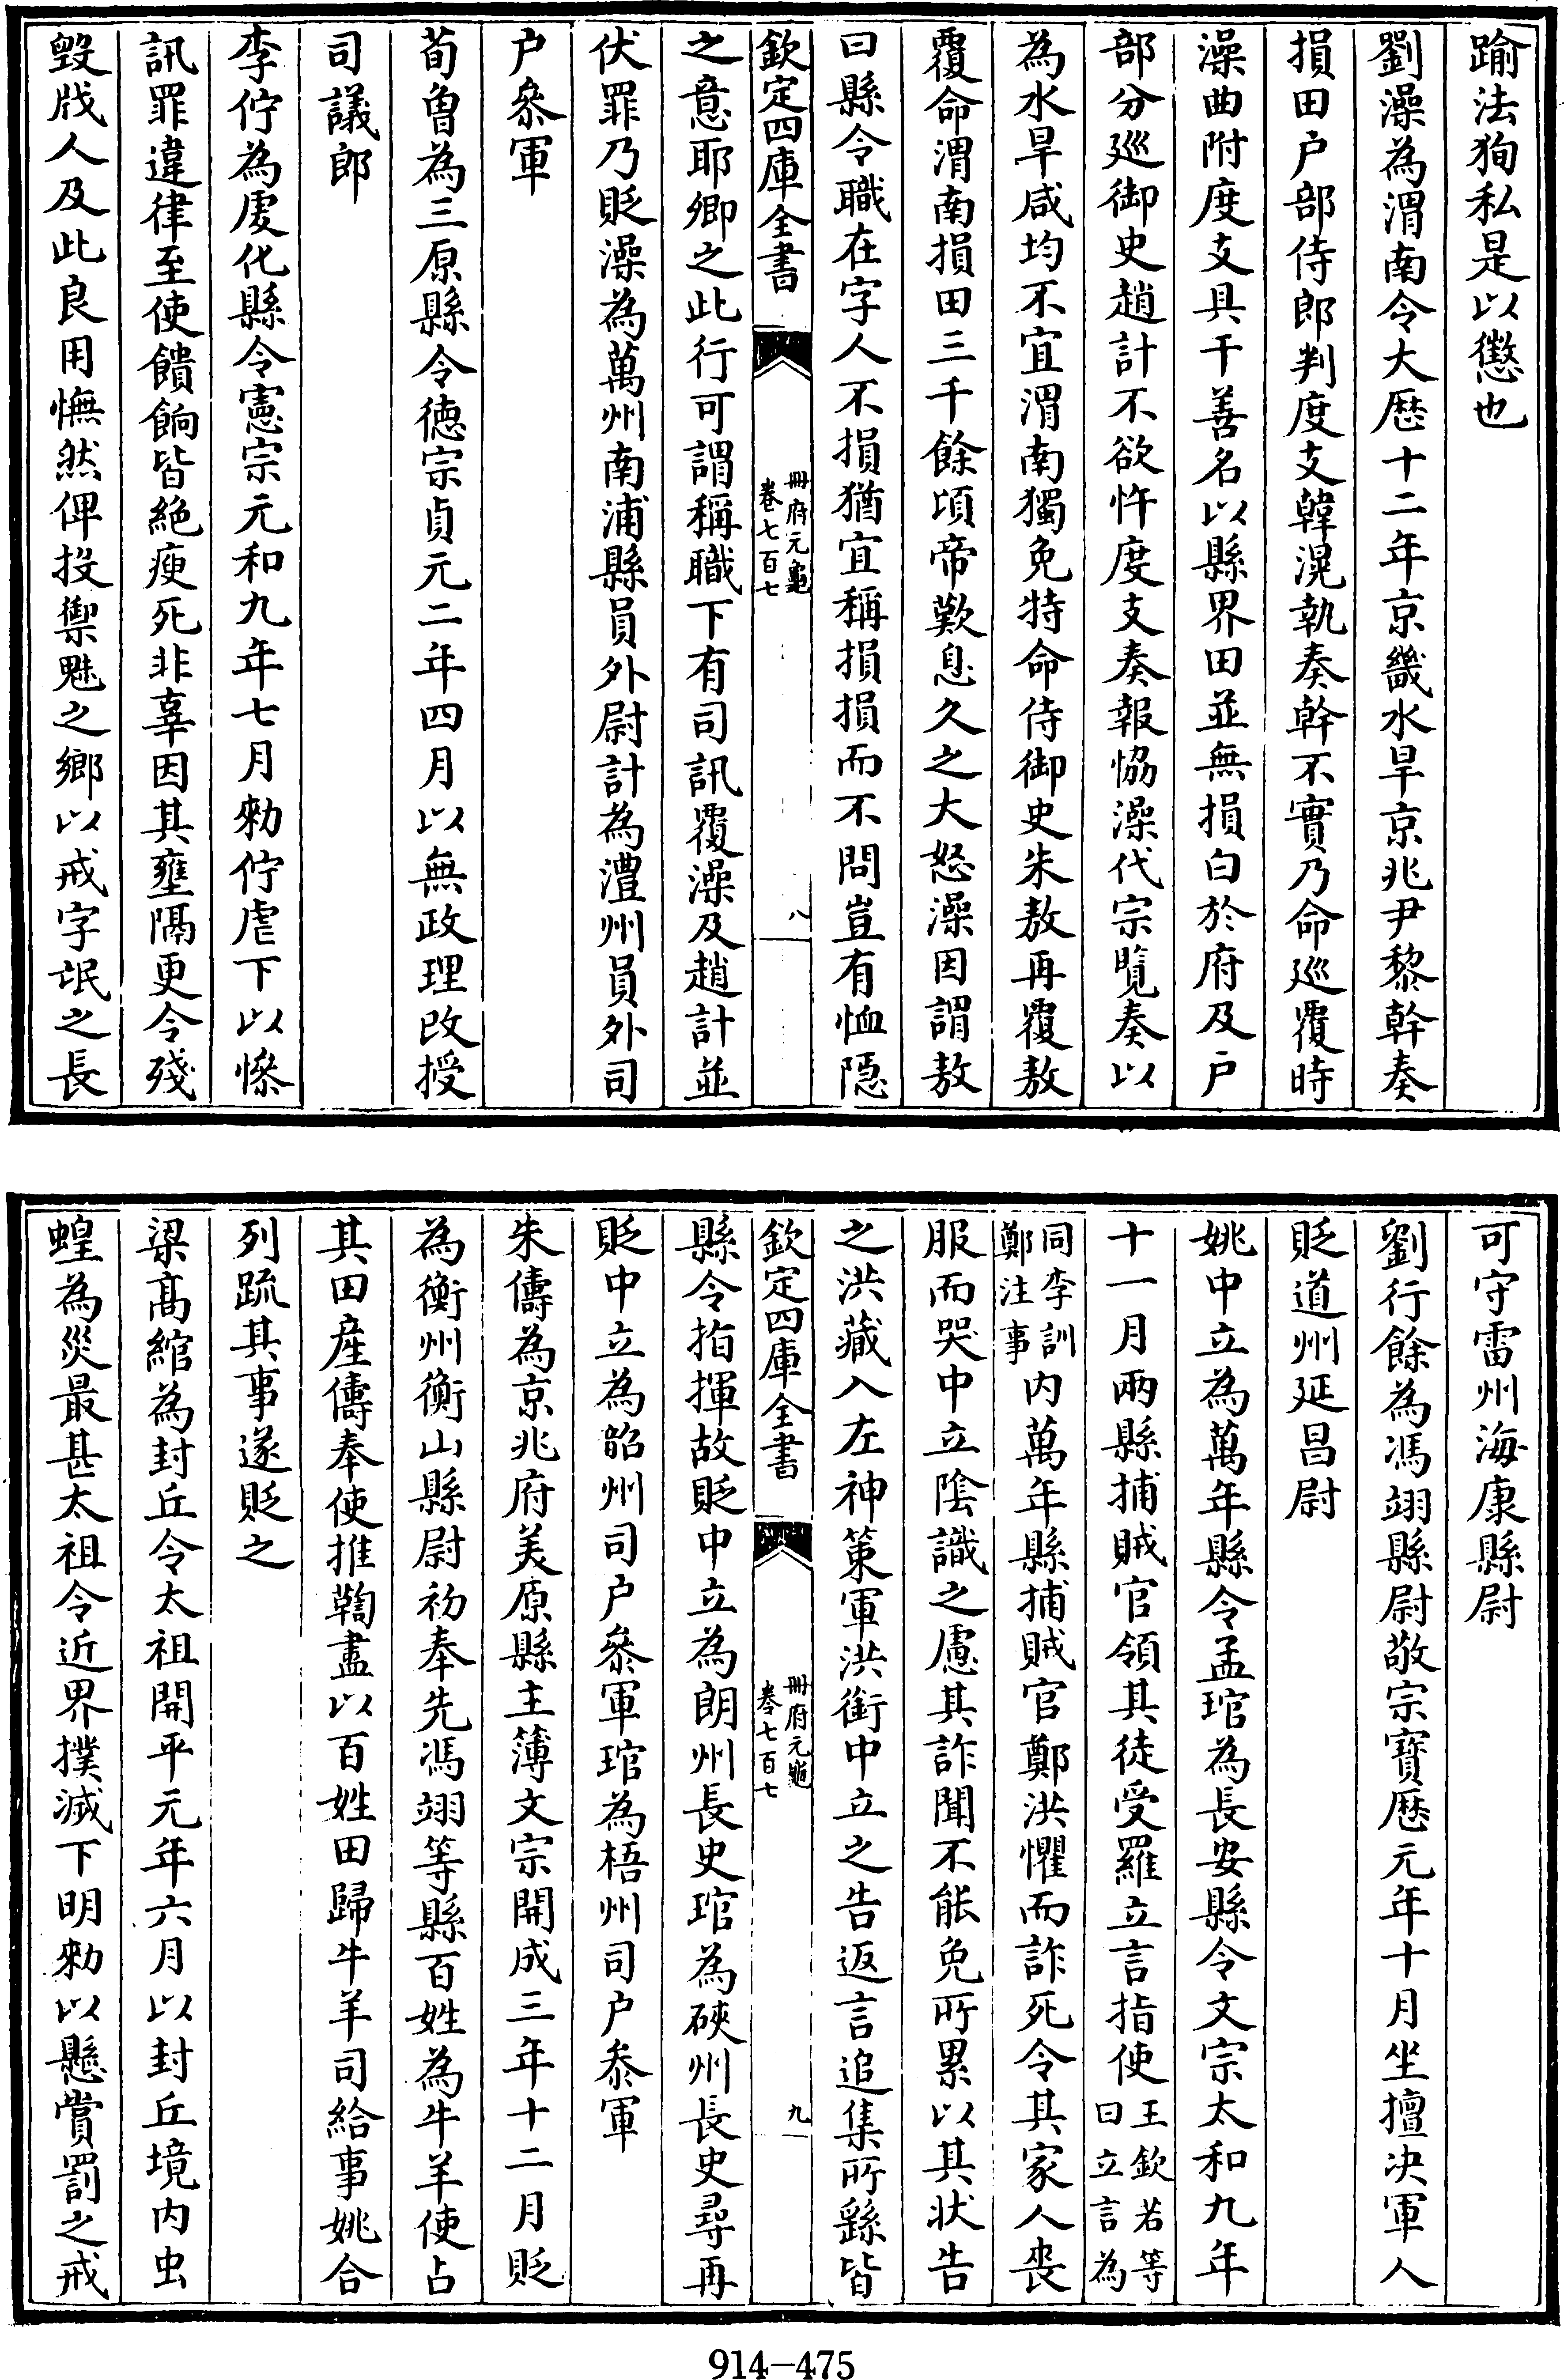 踰法狥私是以懲也
劉澡為渭南令大厯十二年京畿水旱京兆尹黎幹奏
損田户部侍郎判度支韓滉執奏幹不實乃命巡覆時
澡曲附度支具干善名以縣界田並無損白於府及户
部分巡御史趙計不欲忤度支奏報恊澡代宗覽奏以
為水旱咸均不宜渭南獨免特命侍御史朱敖再覆敖
覆命渭南損田三千餘頃帝歎息久之大怒澡因謂敖
曰縣令職在字人不損猶宜稱損損而不問豈有恤隱
欽定四庫全書
冊府元龜
卷七百七
八
之意耶卿之此行可謂稱職下有司訊覆澡及趙計並
伏罪乃貶澡為萬州南浦縣員外尉計為澧州員外司
户叅軍
荀曾為三原縣令德宗貞元二年四月以無政理改授
司議郎
李佇為䖍化縣令憲宗元和九年七月勑佇虐下以慘
訊罪違律至使饋餉皆絶瘐死非辜因其壅隔更令殘
毀戕人及此良用憮然俾投禦魅之鄉以戒字氓之長
可守雷州海康縣尉
劉行餘為馮翊縣尉敬宗寶厯元年十月坐擅决軍人
貶道州延昌尉
姚中立為萬年縣令孟琯為長安縣令文宗太和九年
十一月兩縣捕賊官領其徒受羅立言指使王欽若等曰立言為
同李訓鄭注事内萬年縣捕賊官鄭洪懼而詐死令其家人喪
服而哭中立隂識之慮其詐聞不能免所累以其狀告
之洪藏入左神策軍洪銜中立之告返言追集所繇皆
欽定四庫全書
冊府元龜
卷七百七
九
縣令指揮故貶中立為朗州長史琯為硤州長史尋再
貶中立為韶州司户叅軍琯為梧州司户叅軍
朱儔為京兆府美原縣主簿文宗開成三年十二月貶
為衡州衡山縣尉初奉先馮翊等縣百姓為牛羊使占
其田産儔奉使推鞫盡以百姓田歸牛羊司給事姚合
列疏其事遂貶之
梁髙綰為封丘令太祖開平元年六月以封丘境内虫
蝗為災最甚太祖令近界撲滅下明勑以懸賞罰之戒
914-475